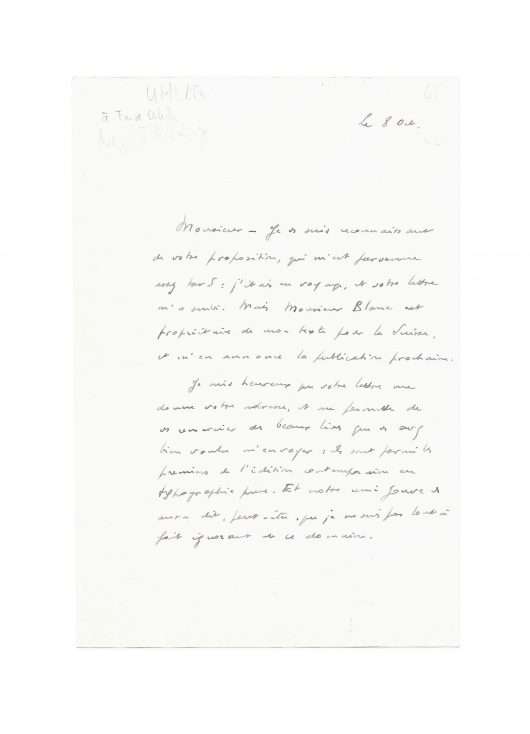 le 8 Oct.
Monsieur – Je vs suis reconnaissant
de votre proposition, qui m'est parvenue
assez tard : j'étais en voyage, et votre lettre
m'a suivi. Mais Monsieur Blanc est
propriétaire de mon texte pour la Suisse,
et m'en annonce la publication prochaine.
Je suis heureux que votre lettre me
donne votre adresse, et me permette de
vs remercier des beaux livres que vs avez
bien voulu m'envoyer : ils sont parmi les
premiers de l'édition contemporaine en
typographie pure. Et notre ami Jouve vs
aura dit, peut-être, que je ne suis pas tout à
fait ignorant de ce domaine.